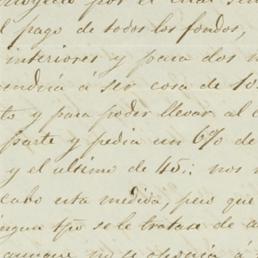 el pago de todos los fondos,
interiores y para dos
vendria á ser cosa de 10
to y para poder llevar al c
parte y pedia un 6% de
y el ultimo de 45.: nos
cabo esta medida, pero que
ingua tpo se le tratase de
aunque no se oponia á